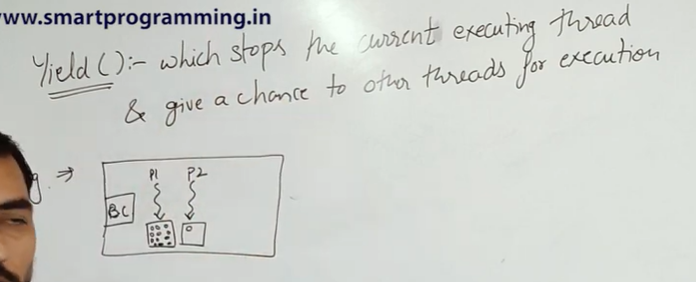 www.smartprogramming.in
Yield():- which stops the current executing thread
& give a chance to other threads for execution
g. ⇒
P1 P2
BC